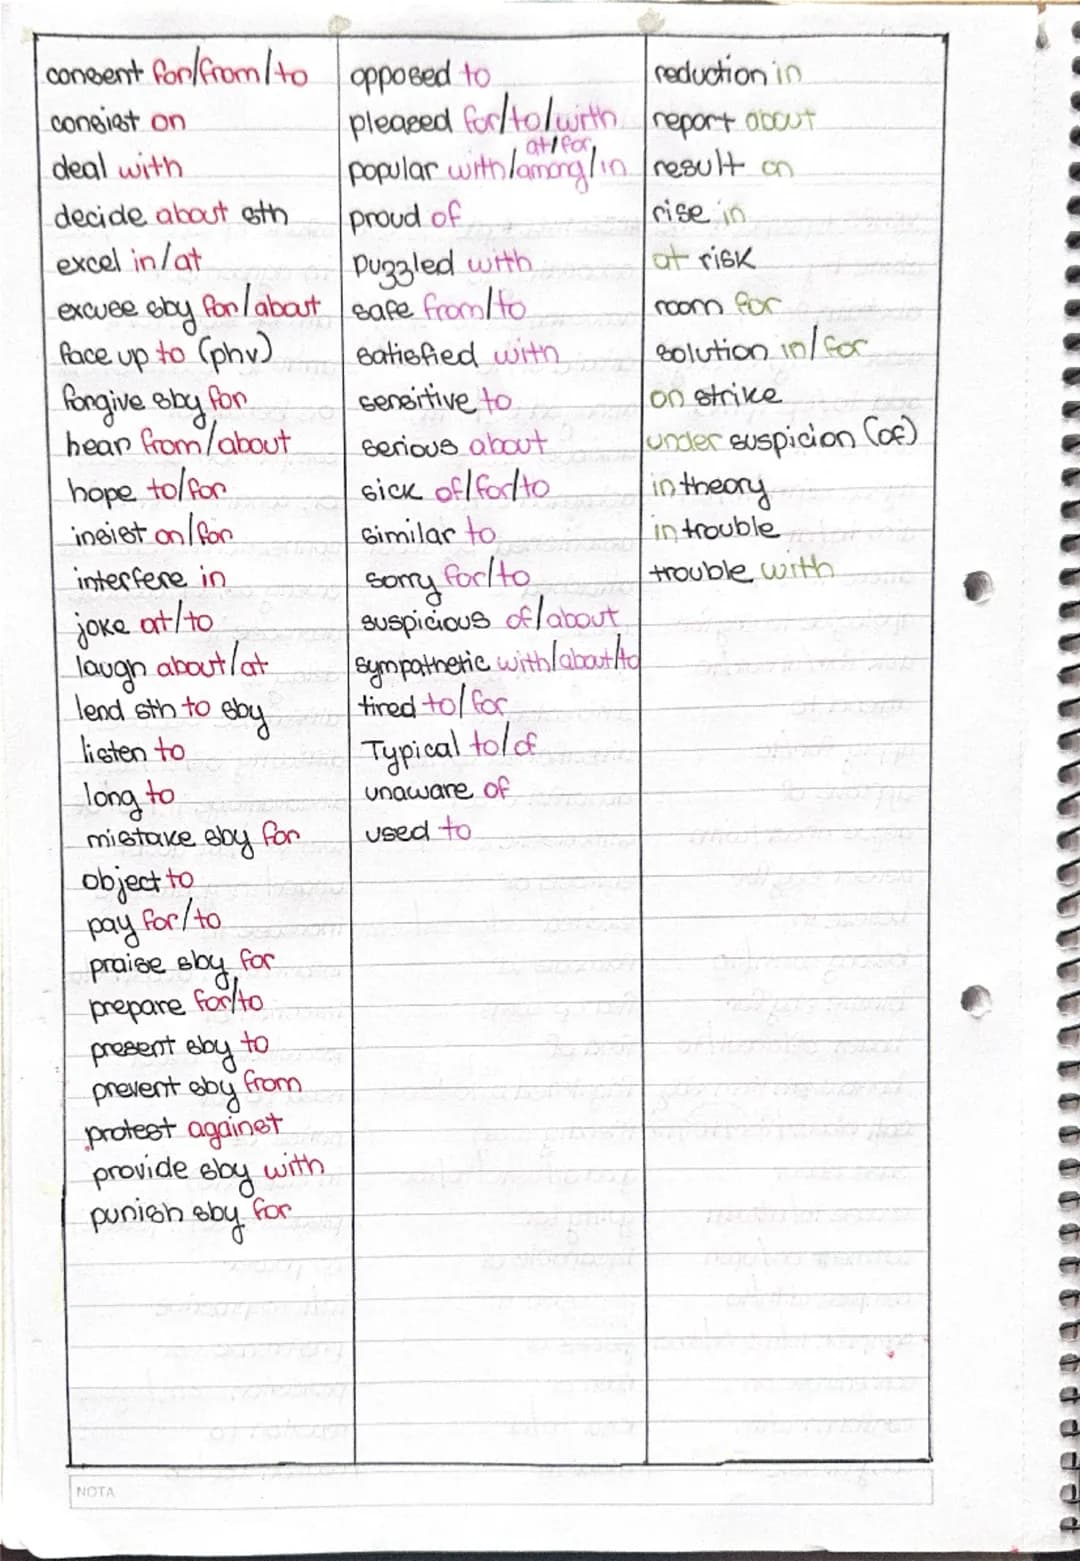 consent for/from/to
consist on
deal with
decide about sth
excel in/at
excuse sby for/about
face up to (phv)
forgive sby for
hear from/about
hope to/for
insist on/for
interfere in
joke at/to
laugh about/at
lend sth to sby
listen to
long to
mistake sby for
object to
pay for/to
praise sby for
prepare for/to
present sby to
prevent sby from
protest against
provide sby with
punish sby for
opposed to
pleased for/to/with
at/for
popular with/among/in
proud of
puzzled with
safe from/to
satisfied with
sensitive to
serious about
sick of/for/to
similar to
sorry for/to
suspicious of/about
sympathetic with/about/to
tired to/for
Typical to/of
unaware of
used to
reduction in
report about
result on
rise in
at risk
room for
solution in/for
on strike
under suspicion (of)
in theory
in trouble
trouble with
NOTA